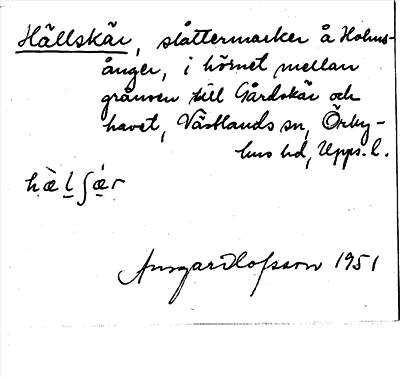 Hällskär, slåttermarker å Holms-
ånger, i hörnet mellan
gränsen till Gårdskär och
havet, Västlands sn, Örby-
hus hd, Upps. l.
hæ̀l̠ʃǽ̠r
Ansgar Olofsson 1951